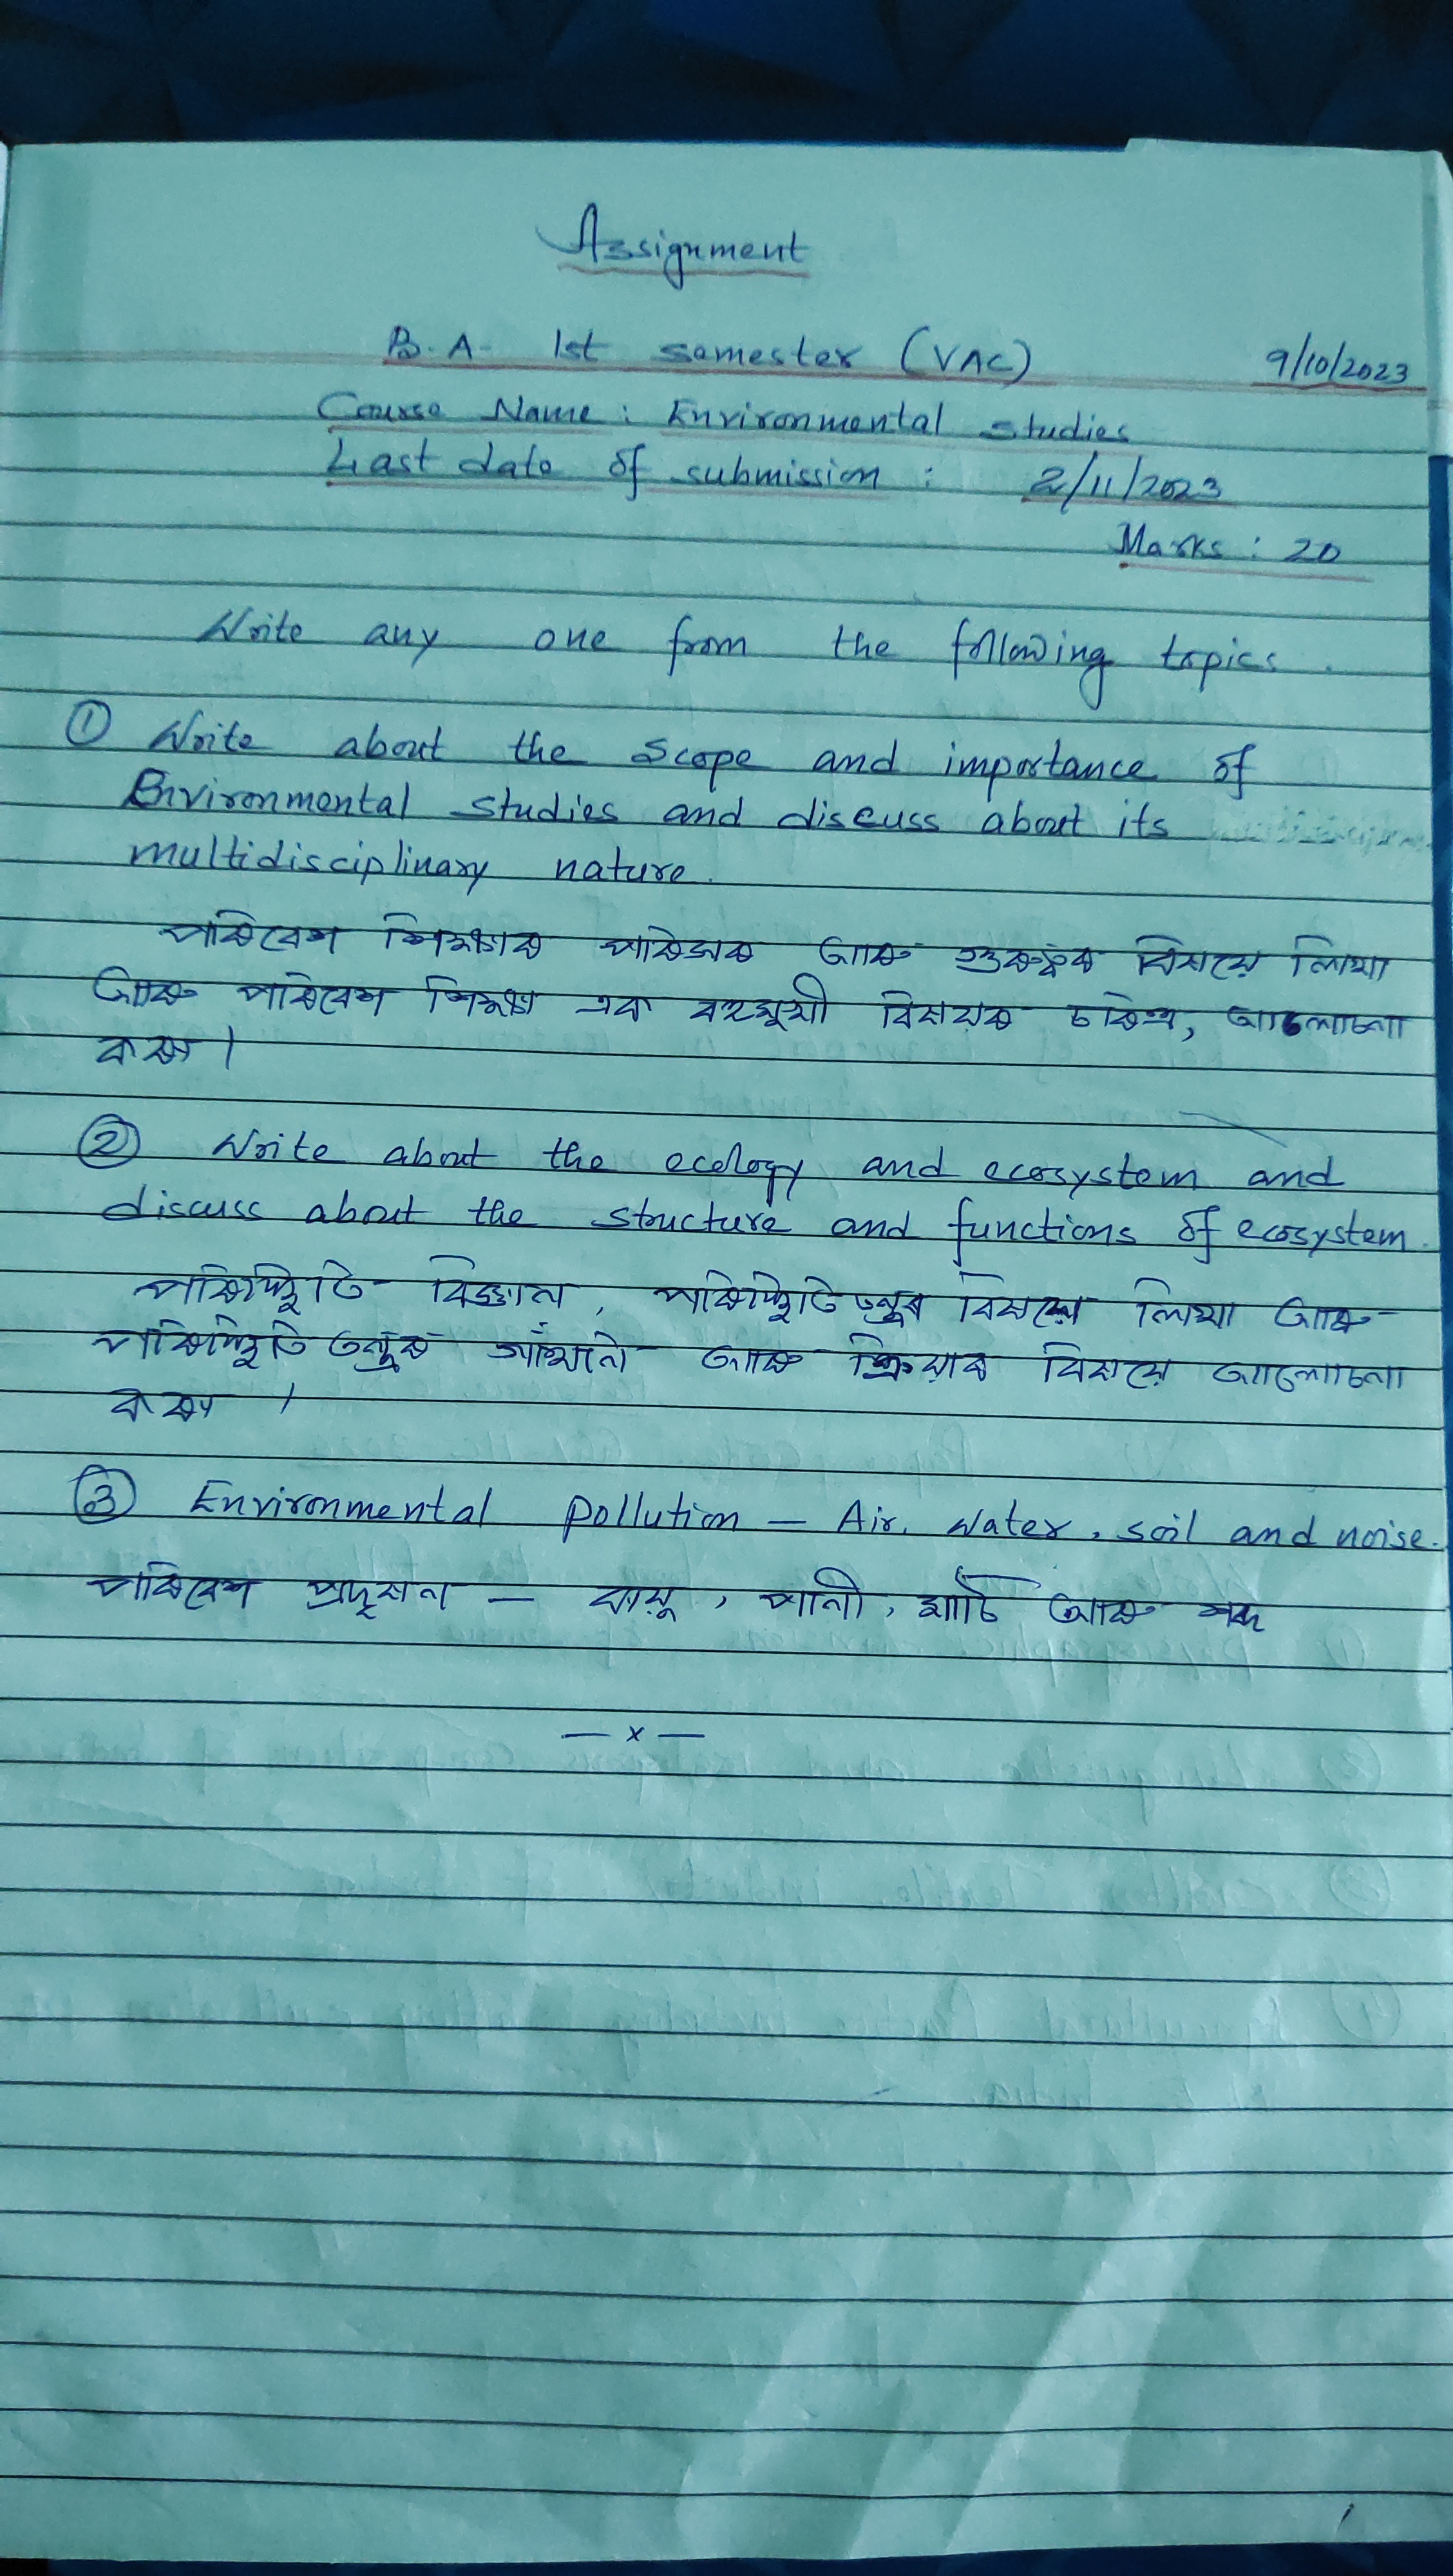 Assignment
B.A. 1st semester (VAC) 9/10/2023
Course Name : Environmental studies
Last date of submission : 2/11/2023
Marks : 20
Write any one from the following topics.
① Write about the scope and importance of
Environmental studies and discuss about its
multidisciplinary nature.
পৰিবেশ শিক্ষাৰ পৰিসৰ আৰু গুৰুত্বৰ বিষয়ে লিখা
আৰু পৰিবেশ শিক্ষা এক বহুমূখী বিষয়ৰ চৰিত্ৰ, আলোচনা
কৰা ।
② Write about the ecology and ecosystem and
discuss about the structure and functions of ecosystem.
পৰিস্থিতি বিজ্ঞান, পৰিস্থিতি তন্ত্ৰৰ বিষয়ে লিখা আৰু
পৰিস্থিতি তন্ত্ৰৰ গাঁথনি আৰু ক্ৰিয়াৰ বিষয়ে আলোচনা
কৰা ।
③ Environmental pollution — Air, Water, soil and noise.
পৰিবেশ প্ৰদূষন — বায়ু, পানী, মাটি আৰু শব্দ
— x —